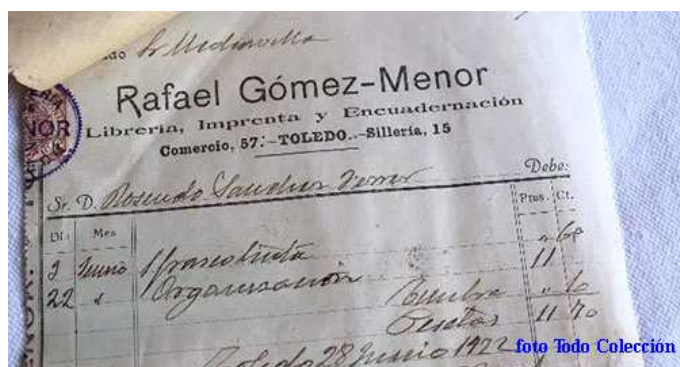 Rafael Gómez-Menor
Librería, Imprenta y Encuadernación
Comercio, 57.-TOLEDO.-Sillería, 15
NOR
Debe:
Sr. D. Rosendo Sanchez Ferrer
Día Mes Ptas. Ct.
9 Junio 1 frasco tinta " 60
22 " Organización 11
Timbre " 10
Pesetas 11 70
Toledo 28 Junio 1922
foto Todo Colección